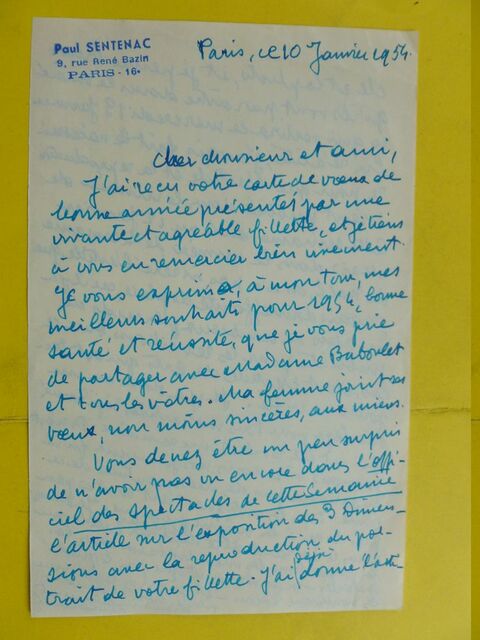 Paul SENTENAC
9, rue René Bazin
PARIS - 16e
Paris, le 10 Janvier 1954.
Cher Monsieur et ami,
J'ai reçu votre carte de vœux de
bonne année présentés par une
vivante et agréable fillette, et je tiens
à vous en remercier bien vivement.
Je vous exprime, à mon tour, mes
meilleurs souhaits pour 1954, bonne
santé et réussite, que je vous prie
de partager avec Madame Baboulet
et tous les vôtres. Ma femme joint ses
vœux, non moins sincères, aux miens.
Vous devez être un peu surpris
de n'avoir pas vu encore dans l'offi-
ciel des spectacles de cette semaine
l'article sur l'exposition des 3 Dimen-
sions avec la reproduction du por-
trait de votre fillette. J'ai déjà donné l'arti-